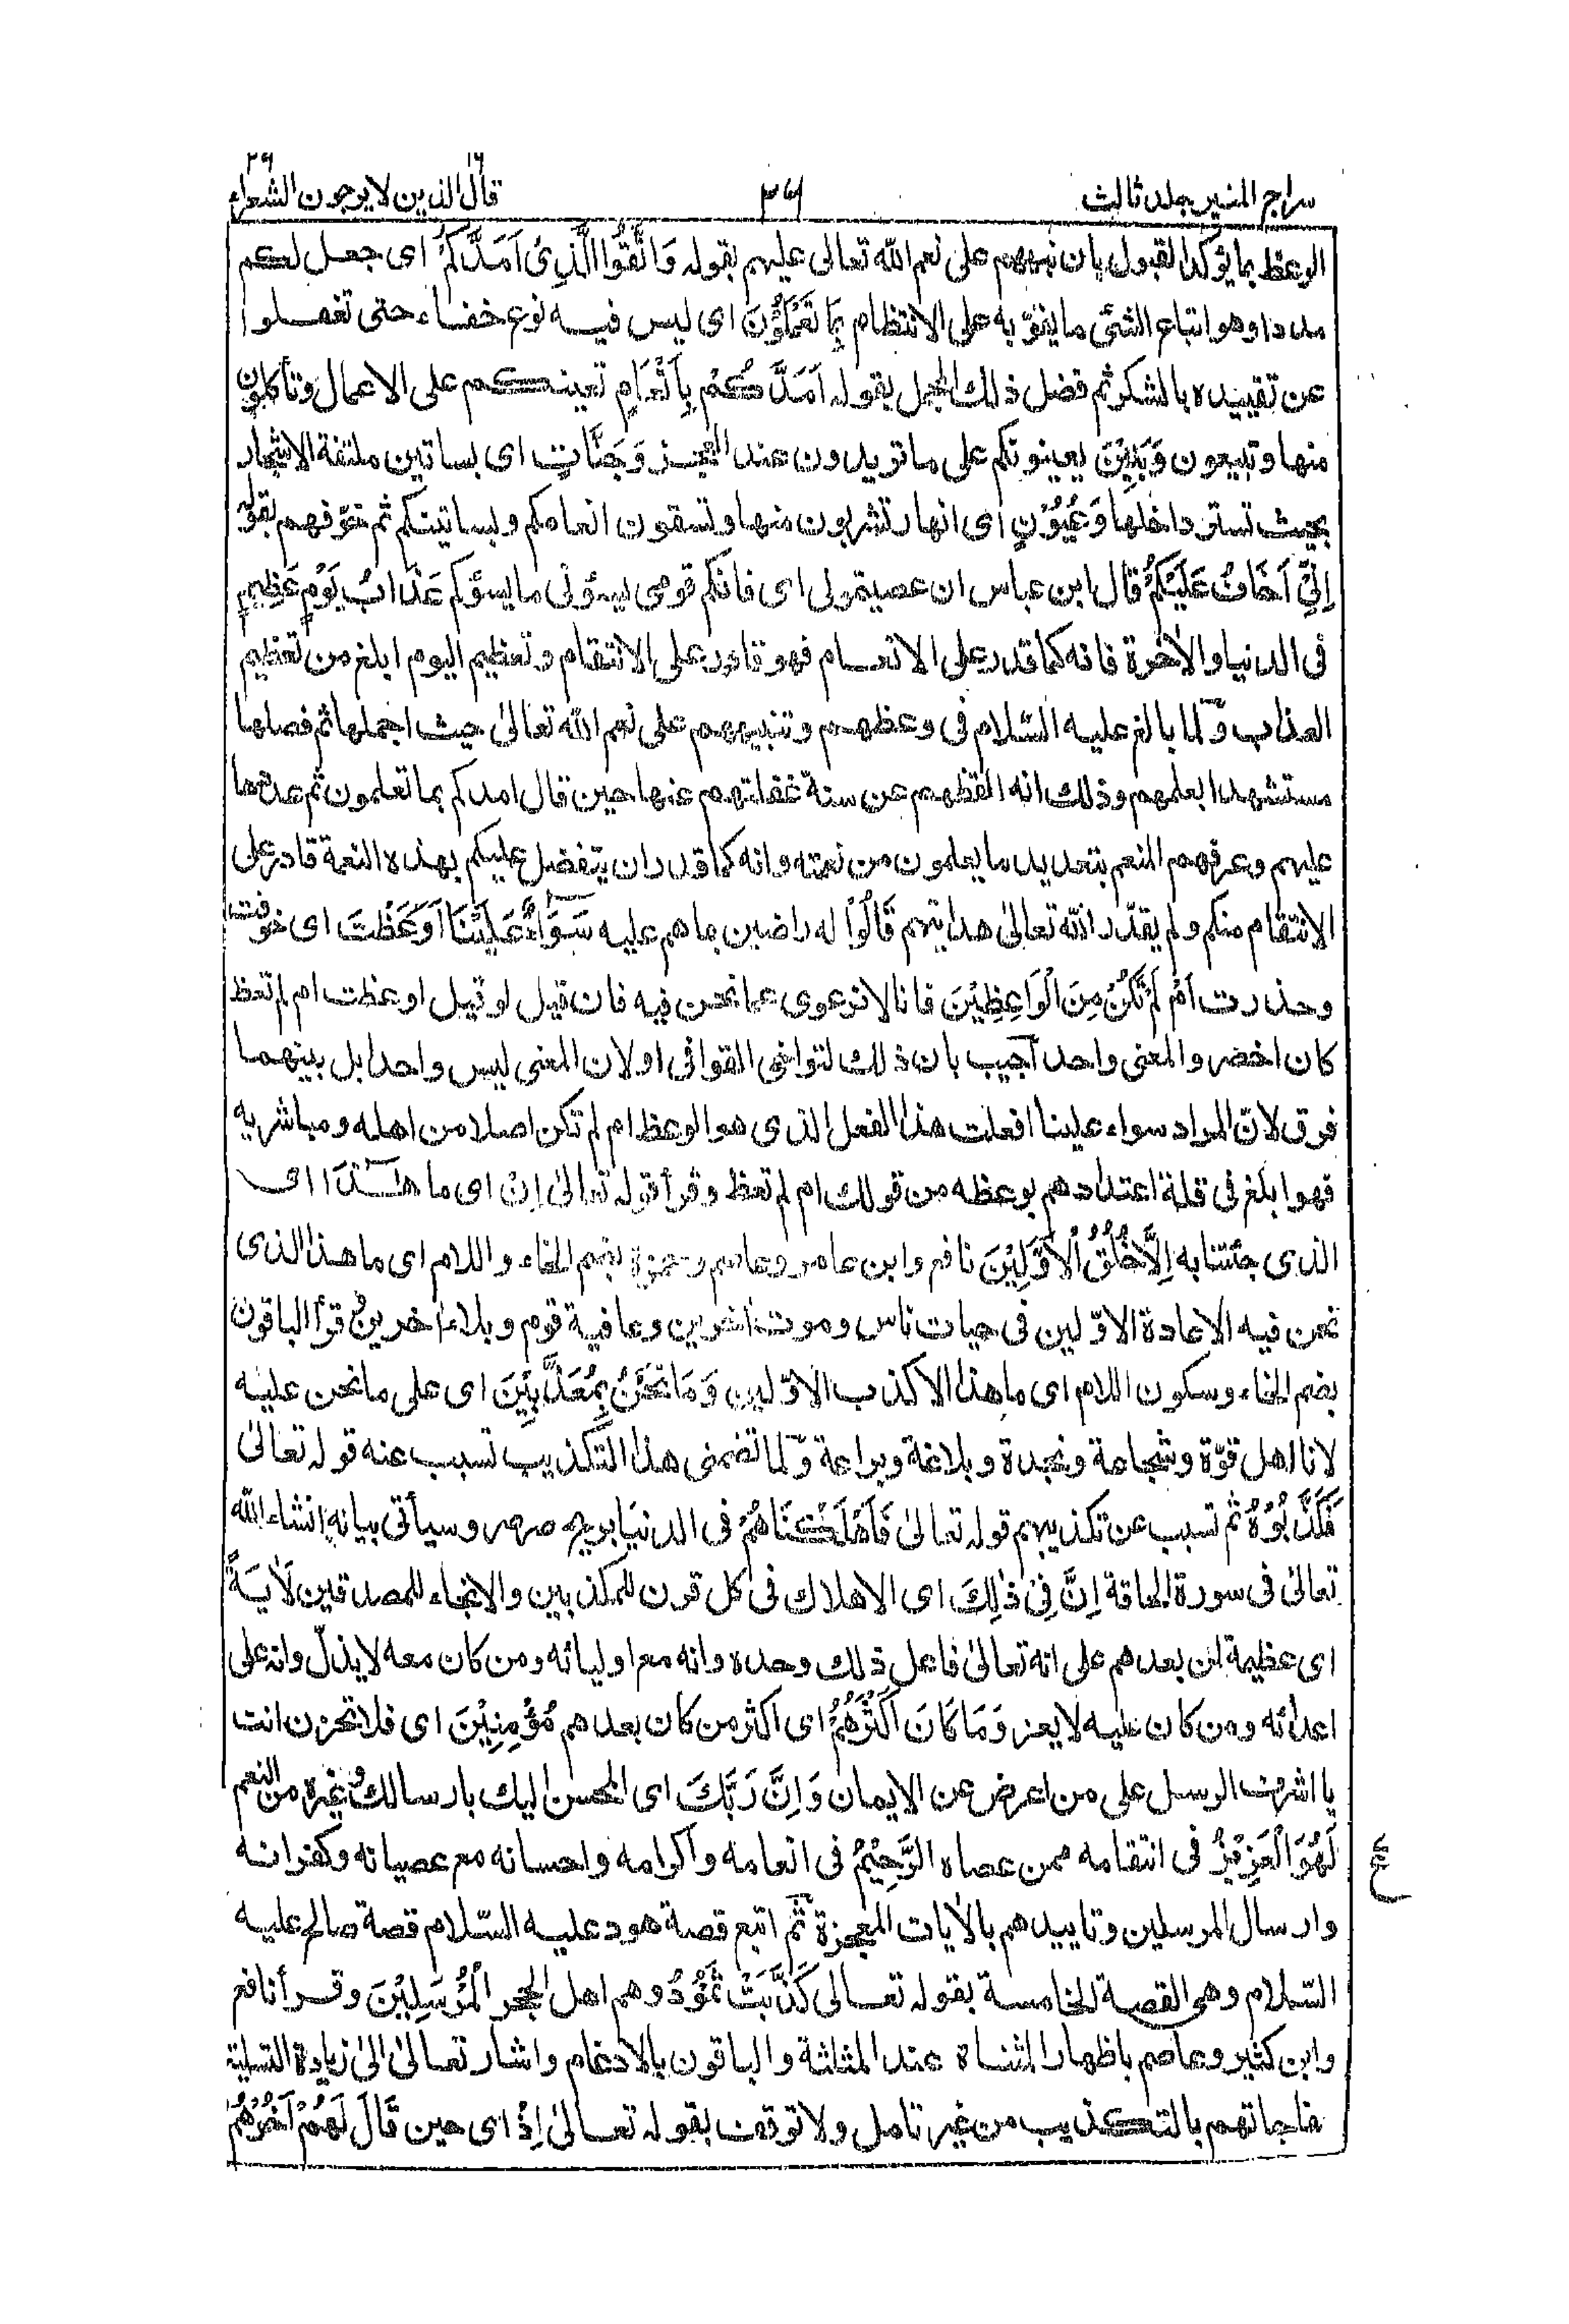 سراج المنیر جلد ثالث
٣٦
قال الذین لا یرجون الشعراء
١٩ ٢٦
الوعظ بما یؤکد القبول بان نبههم علی نعم الله تعالی علیهم بقوله وَاتَّقُوا الَّذِیْ اَمَدَّکُمْ ای جعل لکم
مددا وهو اتباع الشئ ما یقوّیه علی الانتظام بِمَا تَعْلَمُوْنَ ای لیس فیه نوع خفاء حتی تغفلوا
عن تقییده بالشکر ثم فصل ذلك المجمل بقوله اَمَدَّکُمْ بِاَنْعَامٍ تعینکم علی الاعمال وتأکلون
منها وتبیعون وَبَنِیْنَ یعینونکم علی ما تریدون عند العجز وَجَنَّاتٍ ای بساتین ملتفة الاشجار
بحیث تستر داخلها وَعُیُوْنٍ ای انهار تشربون منها وتسقون انعامکم وبساتینکم ثم خوّفهم بقوله
اِنِّیْ اَخَافُ عَلَیْکُمْ قال ابن عباس ان عصیتمونی ای فانکم قومی یسؤنی ما یسؤکم عَذَابَ یَوْمٍ عَظِیْمٍ
فی الدنیا والاٰخرة فانه کما قدر علی الانعام فهو قادر علی الانتقام وتعظیم الیوم ابلغ من تعظیم
العذاب وّلما بالغ علیه السّلام فی وعظهم وتنبیههم علی نعم الله تعالیٰ حیث اجملها ثم فصلها
مستشهدا بعلمهم وذلك انه ایقظهم عن سنة غفلتهم عنها حین قال امدکم بما تعلمون ثم عددها
علیهم وعرفهم المنعم بتعدید ما یعلمون من نعمته وانه کما قدر ان یتفضل علیکم بهذه النعمة قادر علی
الانتقام منکم ولم یقدّر الله تعالیٰ هدایتهم قَالُوْا له راضین بما هم علیه سَوَآءٌ عَلَیْنَا اَوَعَظْتَ ای خوفت
وحذرت اَمْ لَمْ تَکُنْ مِنَ الْوَاعِظِیْنَ فانا لا نرعوی عما نحن فیه فان قیل لو قیل اوعظت ام لم تعظ
کان اخضر والمعنی واحد اجیب بان ذلك لتواخی القوافی اولان المعنی لیس واحدا بل بینهما
فرق لانّ المراد سواء علینا افعلت هذا الفعل الذی هو الوعظ ام لم تکن اصلا من اهله ومباشریه
فهو ابلغ فی قلة اعتدادهم بوعظه من قولك ام لم تعظ وقرأ قوله تعالیٰ اِنْ ای ما هٰذَا ای
الذی جئتنا به اِلَّا خُلُقُ الْاَوَّلِیْنَ نافع وابن عامر وعاصم وحمزة بضم الخاء واللام ای ما هذا الذی
نحن فیه الا عادة الاوّلین فی حیات ناس وموت اٰخرین وعافیة قوم وبلاء اٰخرین وقرأ الباقون
بضم الخاء وسکون اللام ای ما هذا الا کذب الاوّلین وَمَا نَحْنُ بِمُعَذَّبِیْنَ ای علی ما نحن علیه
لانا اهل قوّة وشجاعة ونجدة وبلاغة وبراعة وّلما تضمنی هذا التّکذیب تسبب عنه قوله تعالیٰ
فَکَذَّبُوْهُ ثم تسبب عن تکذیبهم قوله تعالیٰ فَاَهْلَکْنَاهُمْ فی الدنیا بریح صرصر وسیأتی بیانه انشاء الله
تعالیٰ فی سورة الحاقة اِنَّ فِیْ ذٰلِكَ ای الاهلاك فی کل قرن للمکذبین والانجاء للمصدقین لَاٰیَةً
ای عظیمة لمن بعدهم علی انه تعالیٰ فاعل ذلك وحده وانه مع اولیائه ومن کان معه لا یذلّ وانه علی
اعدائه ومن کان علیه لا یعز وَمَا کَانَ اَکْثَرُهُمْ ای اکثر من کان بعدهم مُؤْمِنِیْنَ ای فلا تحزن انت
یا اشرف الرسل علی من اعرض عن الایمان وَاِنَّ رَبَّكَ ای المحسن الیك بارسالك وغیره من النعم
لَهُوَ الْعَزِیْزُ فی انتقامه ممن عصاه الرَّحِیْمُ فی انعامه واکرامه واحسانه مع عصیانه وکفرانه
ع
وارسال المرسلین وتاییدهم بالاٰیات المعجزة ثُمّ اتبع قصة هود علیه السّلام قصة صالح علیه
السّلام وهی القصة الخامسة بقوله تعالی کَذَّبَتْ ثَمُوْدُ وهم اهل الحجر الْمُرْسَلِیْنَ وقرأ نافع
وابن کثیر وعاصم باظهار المثناة عند المثلثة والباقون بالادغام واشار تعالیٰ الیٰ زیادة التسلیة
بمفاجاتهم بالتکذیب من غیر تامل ولا توقف بقوله تعالیٰ اِذْ ای حین قَالَ لَهُمْ اَخُوْهُمْ